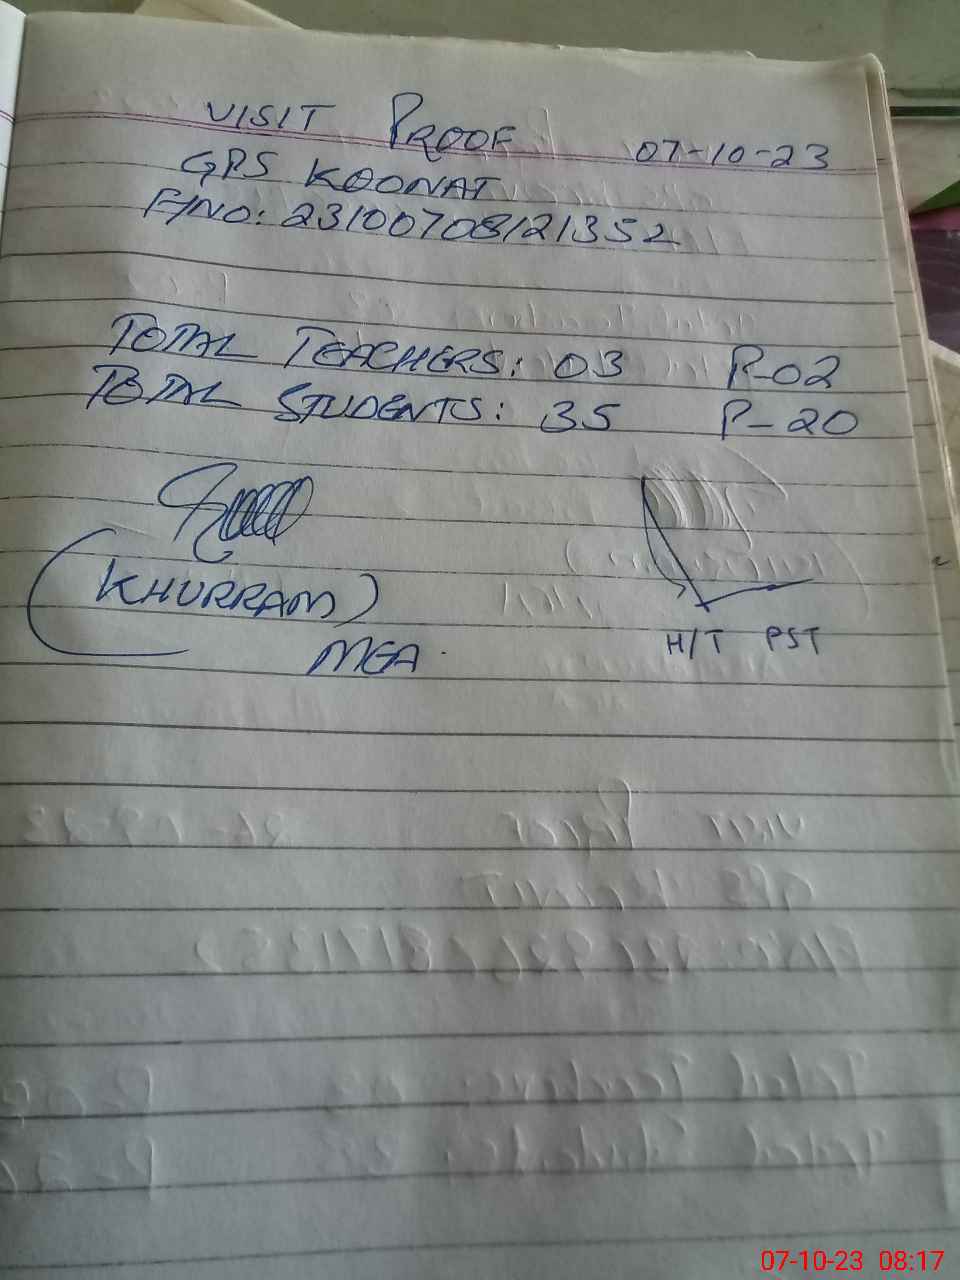 VISIT PROOF 07-10-23
GPS KOONAT
F/NO: 23100708121352
TOTAL TEACHERS: 03 P-02
TOTAL STUDENTS: 35 P-20
(KHURRAM)
MEA
H/T PST
07-10-23 08:17